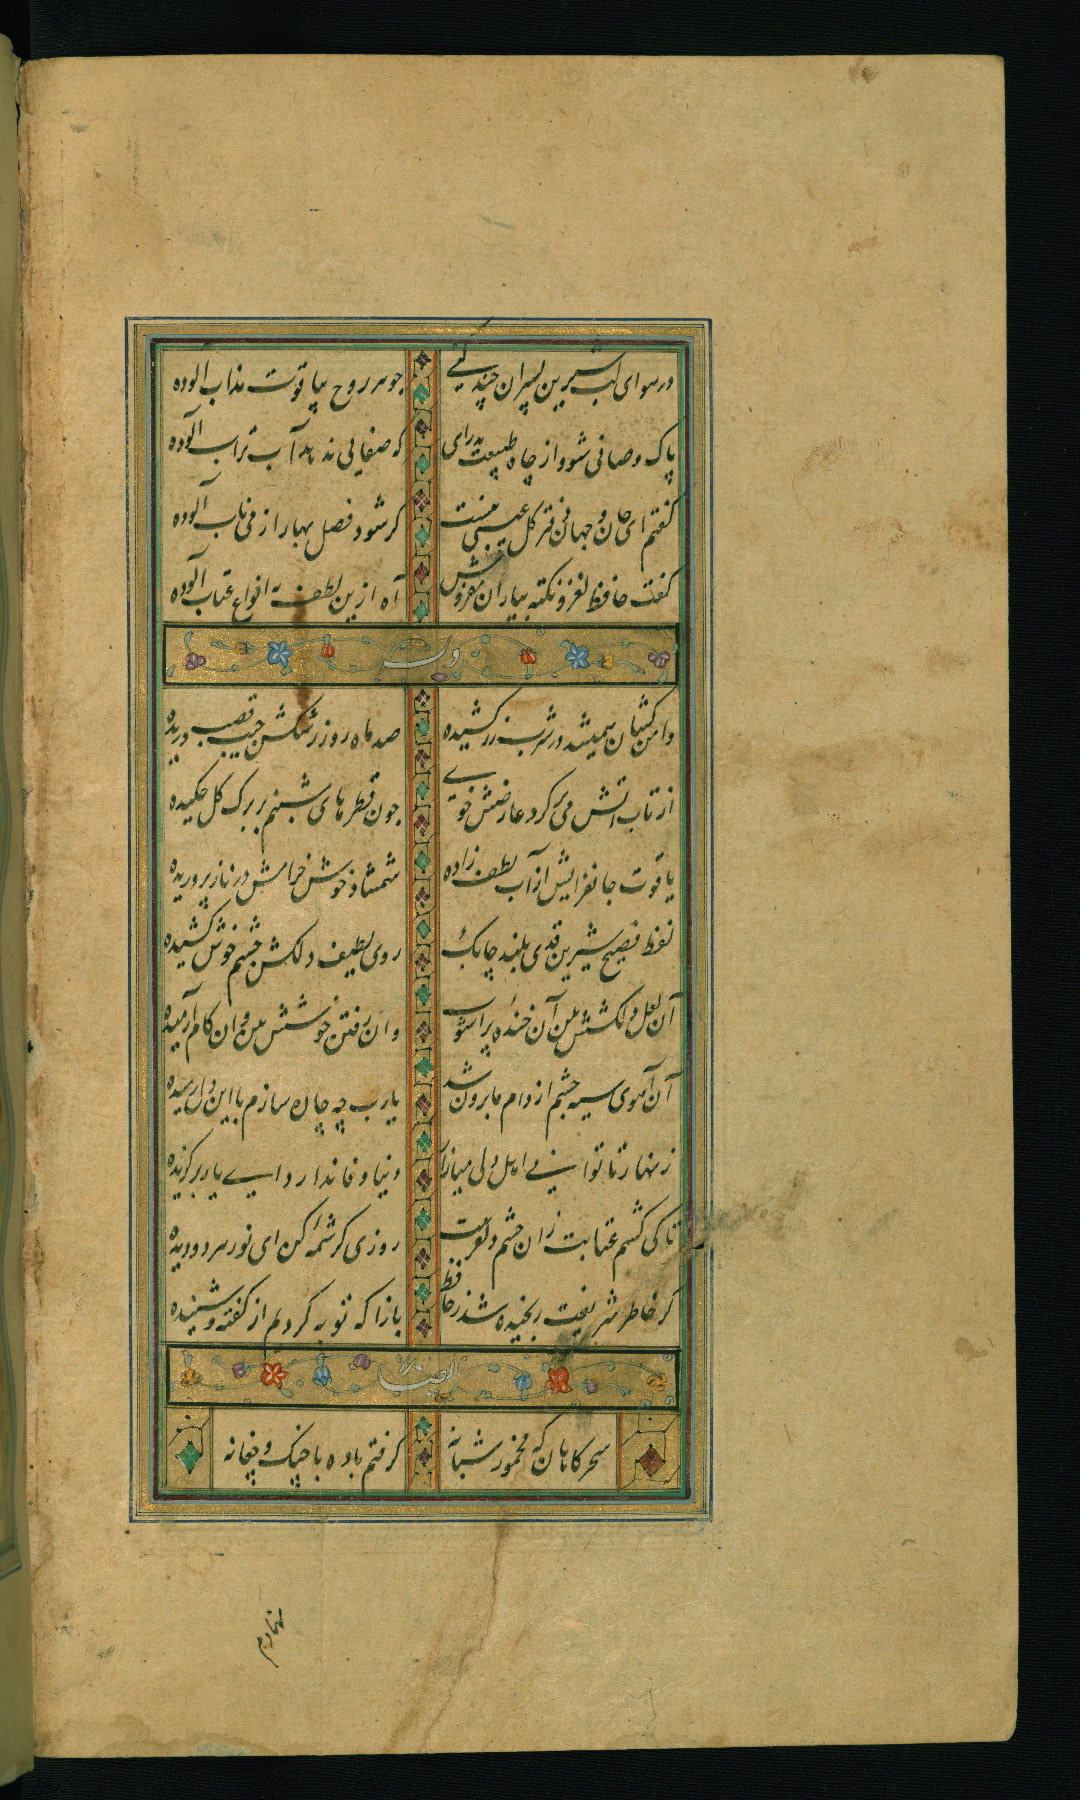 در هوای لب شیرین پسران چند کنی جوهر روح بیاقوت مذاب آلوده
پاک و صافی شو و از چاه طبیعت بدرای که صفایی ندهد آب تراب آلوده
کفتم ای جان و جهان دفتر کل عیبی نیست کر شود فصل بهار از می ناب آلوده
کفت حافظ لغز و نکته بیاران مفروش آه ازین لطف به انواع عتاب آلوده
وله
دامن کشان همیشد در شرب زر کشیده صد ماه رو ز رشکش جیب قصب دریده
از تاب اتش می بر کرد عارضش خوی جون قطرهای شبنم بر برک کل جکیده
یاقوت جانفزایش از آب لطف زاده شمشاد خوش خرامش در ناز پروریده
لفظ فصیح شیرین قدی بلند چابک روی لطیف دلکش جشم خوش کشیده
آن لعل دلکشش بین آن خندهٔ پر اشوب وان رفتن خوشش بین وان کام آرمیده
آن آهوی سیه جشم از دام ما برون شد یارب چه چاره سازم با این دل رمیده
زنهار تا توانی اهل دلی میازار دنیا وفا ندارد ای یار برکزیده
تا کی کشم عتابت زان جشم دلفریبت روزی کرشمهٔ کن ای نور هر دو دیده
کر خاطر شریفت رنجیده شد ز حافظ باز ا که توبه کردم از کفته و شنیده
ایضا
سحرکاهان که مخمور شبانه کرفتم باده با چنک و چغانه
نهادم